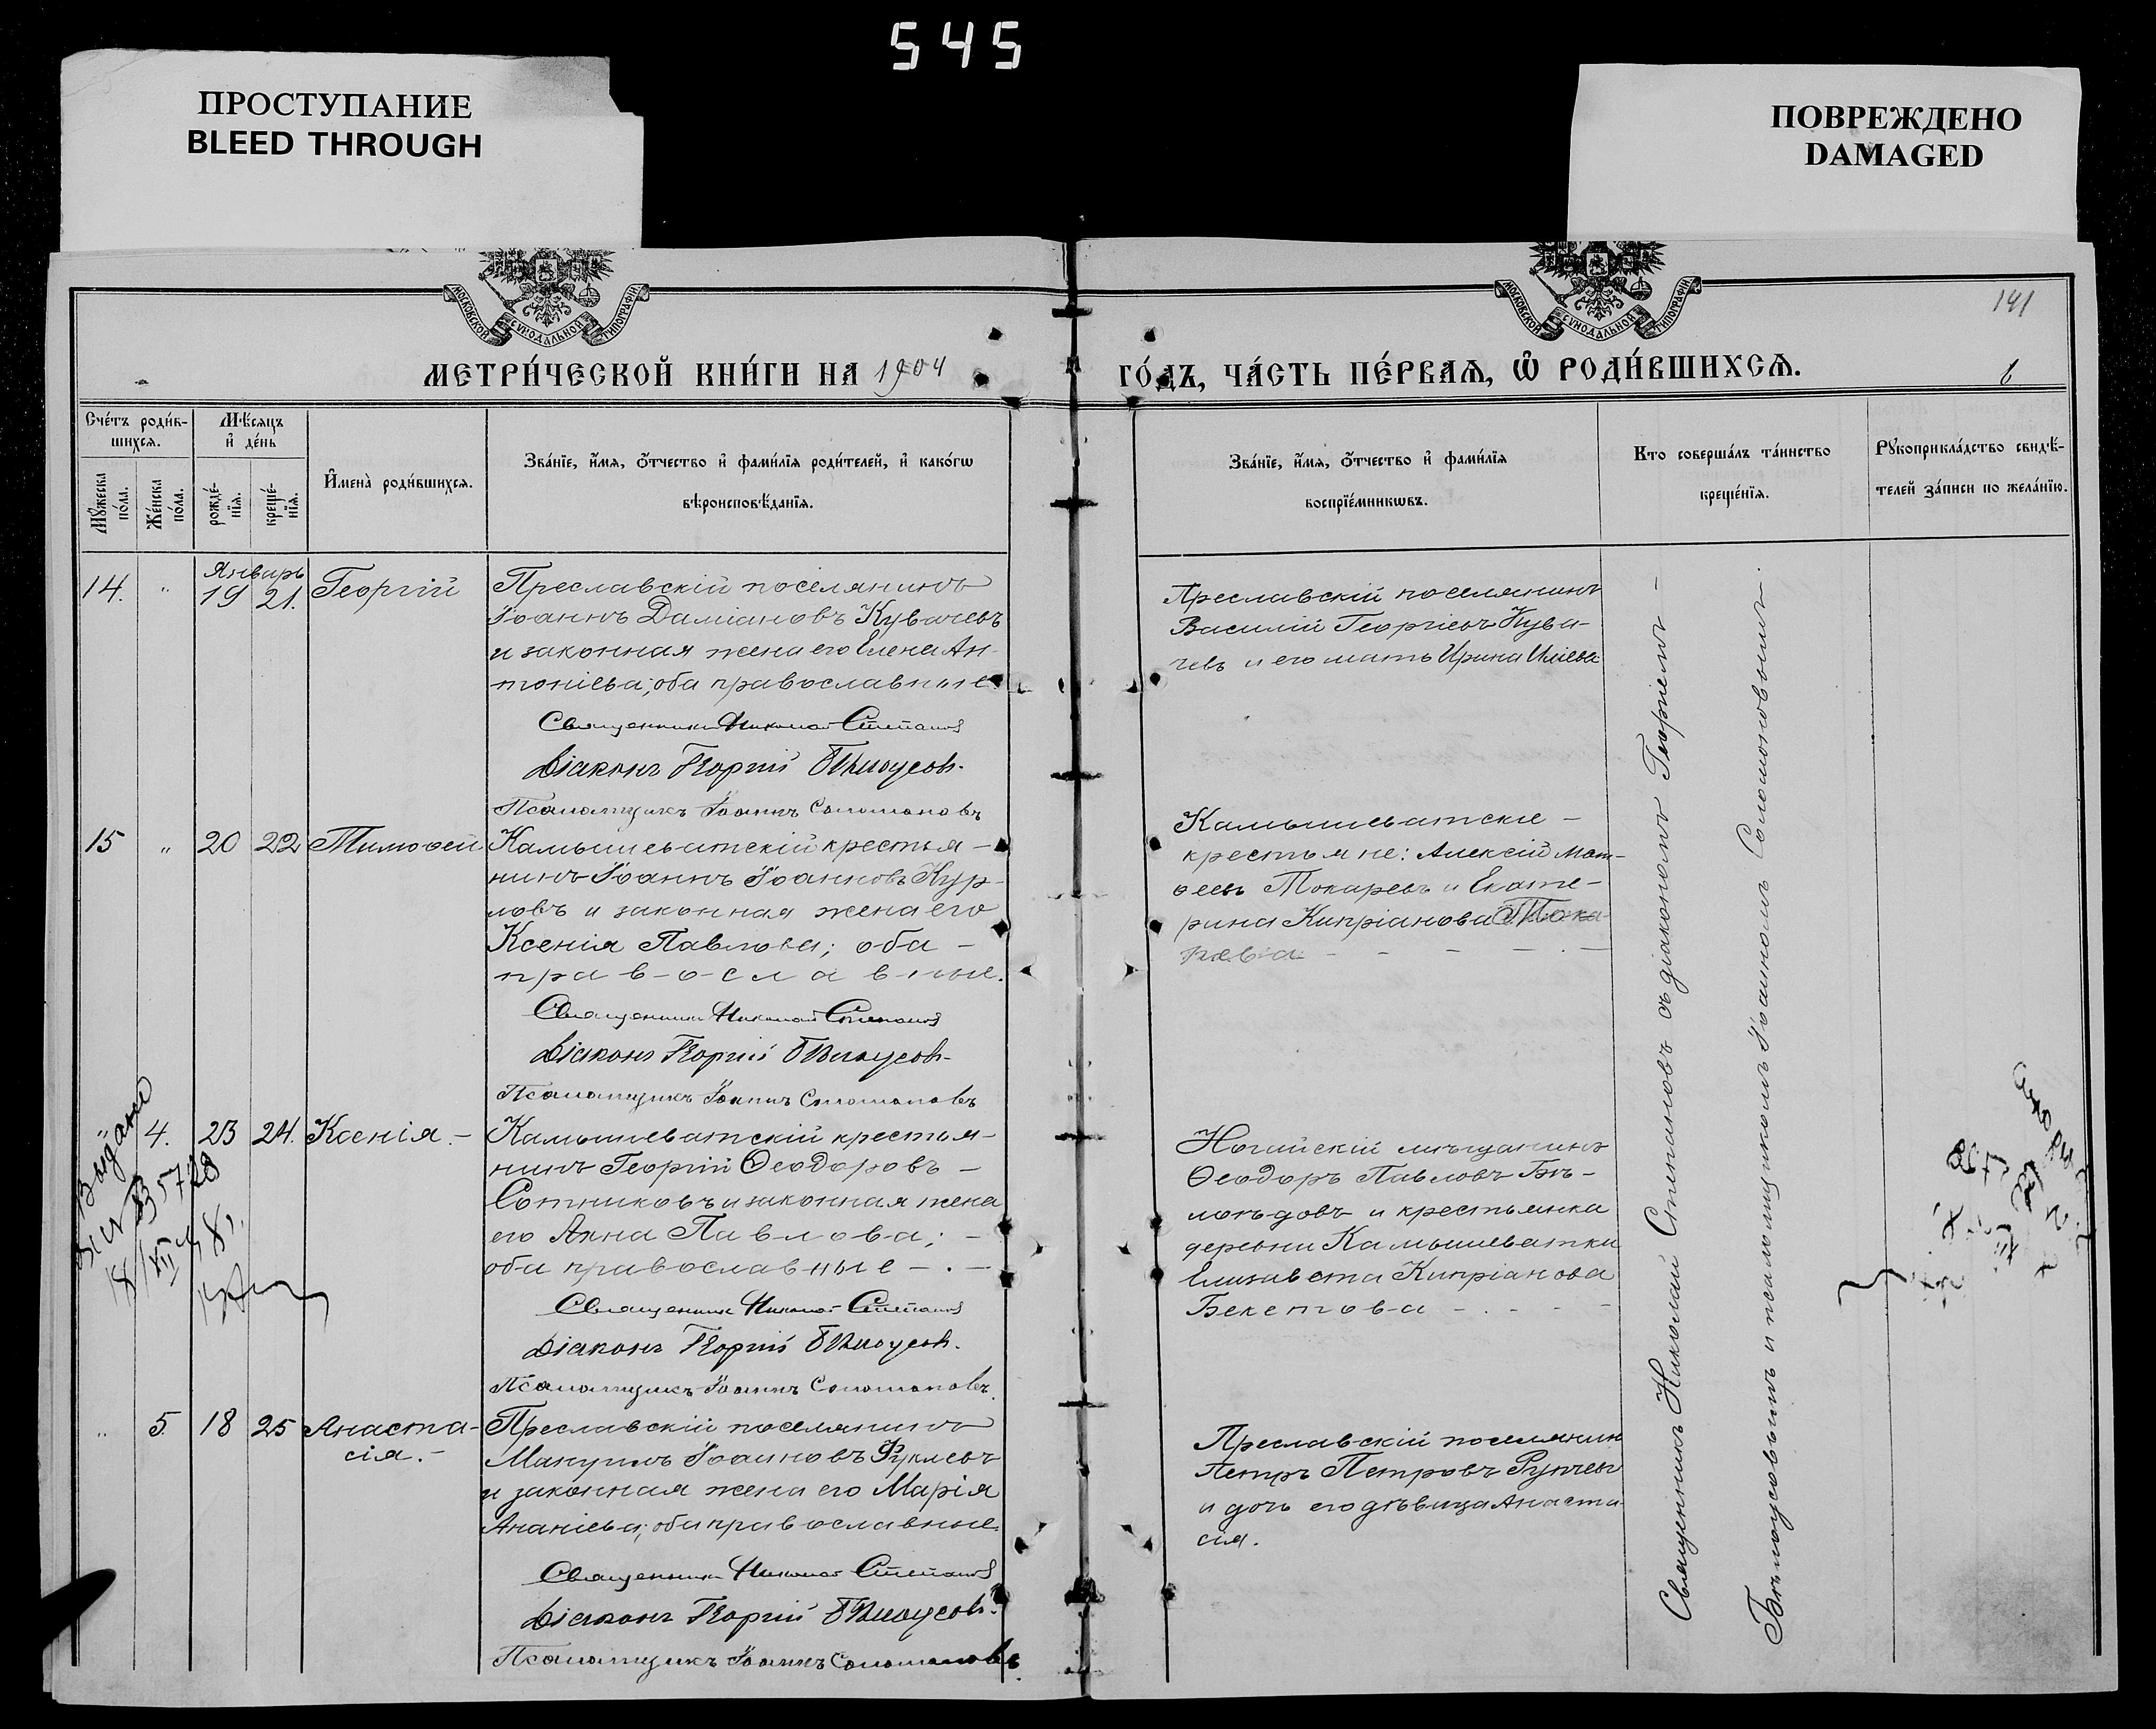 545
ПРОСТУПАНИЕ
BLEED THROUGH
ПОВРЕЖДЕНО
DAMAGED
МОСКОВСКОЙ СУНОДАЛЬНОЙ ТИПОГРАФІИ
МОСКОВСКОЙ СУНОДАЛЬНОЙ ТИПОГРАФІИ
141
МЕТРИ́ЧЕСКОЙ КНИ́ГИ НА 1904
ГО́ДЪ, ЧА́СТЬ ПЕ́РВАѦ, Ѿ РОДИ́ВШИХСѦ.
Сче́тъ роди́в-
шихсѧ.
Мꙋ́жеска по́ла.
Же́нска по́ла.
Мѣ́сѧцъ
и҆ де́нь
рожде́-
нїѧ.
креще́-
нїѧ.
И҆мена̀ роди́вшихсѧ.
Зва́нїе, и҆́мѧ, ѻ҆́тчество и҆ фами́лїѧ роди́телей, и҆ како́гѡ
вѣроисповѣ́данїѧ.
Зва́нїе, и҆́мѧ, ѻ҆́тчество и҆ фами́лїѧ
воспрїе́мникѡвъ.
Кто соверша́лъ та́инство
креще́нїѧ.
Рꙋкоприкла́дство свидѣ́-
телей за́писи по жела́нїю.
Январь
14. " 19 21. Георгій
Преславскій поселянинъ
Іоаннъ Даміановъ Кувачевъ
и законная жена его Елена Ан-
тоніева; оба православные.
Священникъ Николай Степановъ
Діаконъ Георгій Бѣлоусовъ.
Псаломщикъ Іоаннъ Соломоновъ
Преславскій поселянинъ
Василій Георгіевъ Кува-
чевъ и его мать Ирина Иліева
15 " 20 22 Тимоѳей
Камышеватскій крестья-
нинъ Іоаннъ Іоанновъ Кур-
ловъ и законная жена его
Ксенія Павлова; оба -
православные.
Священникъ Николай Степановъ
Діаконъ Георгій Бѣлоусовъ.
Псаломщикъ Іоаннъ Соломоновъ
Камышеватскіе -
крестьяне: Алексій Мат-
ѳеевъ Токаревъ и Екате-
рина Кипріанова Тока-
рева
" 4. 23 24. Ксенія. -
Камышеватскій крестья-
нинъ Георгій Ѳеодоровъ -
Сотниковъ и законная жена
его Анна Павлова; -
оба православные - . -
Священникъ Николай Степановъ
Діаконъ Георгій Бѣлоусовъ.
Псаломщикъ Іоаннъ Соломоновъ.
Ногайскій мѣщанинъ
Ѳеодоръ Павловъ Бѣ-
лоѣдовъ и крестьянка
деревни Камышеватки
Елизавета Кипріанова
Бекетова - . - - -
Выдано
" 5. 18 25 Анаста-
сія. -
Преславскій поселянинъ
Іоанновъ Фуклевъ
и законная жена его Марія
Ананіева; оба православные.
Священникъ Николай Степановъ
Діаконъ Георгій Бѣлоусовъ.
Псаломщикъ Іоаннъ Соломоновъ
Преславскій поселянин
Петръ Петровъ Рунчевъ
и дочь его дѣвица Анаста-
сія.
Священникъ Николай Степановъ съ діакономъ Георгіемъ -
Бѣлоусовымъ и псаломщикомъ Іоанномъ Соломоновымъ.